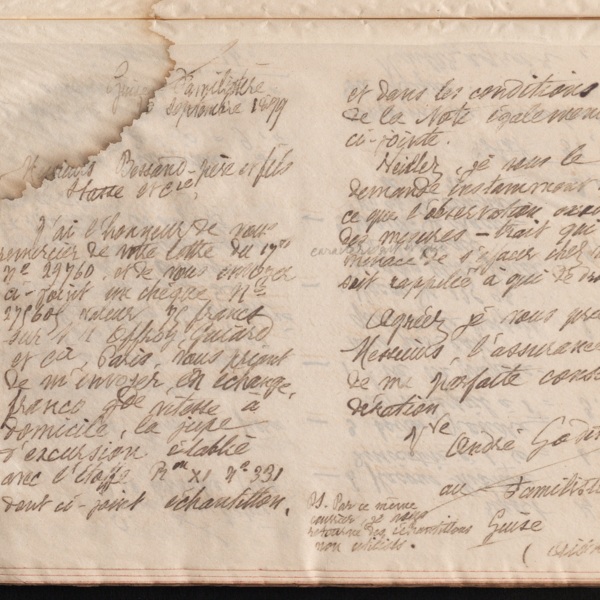 Guise Familistère
septembre 18
Messieurs Bessand-père et fils
Stasse et Cie,
J'ai l'honneur de vous
remercier de votre lettre du 17
nº 29760, et de vous envoyer
ci-joint un chèque Nº
valeur francs
sur Offroy Guiard
et Cie, Paris, vous priant
de m'envoyer, en échange,
franco de vitesse à
domicile, la jupe
d'excursion établie
avec l'étoffe XI nº 331
dont ci-joint échantillon,
et dans les conditions
de la Note également
ci-jointe.
Veillez, je vous le
demande instamment
ce que l'observation
des mesures – trait qui
menace de s'effacer chez
soit rappelée à qui de
Agréez je vous
Messieurs, l'assurance
de ma parfaite consi
dération
Vve André Godin
au Familistère
Guise
PS. Par ce même
courrier, je vous
retourne les échantillons
non utilisés.